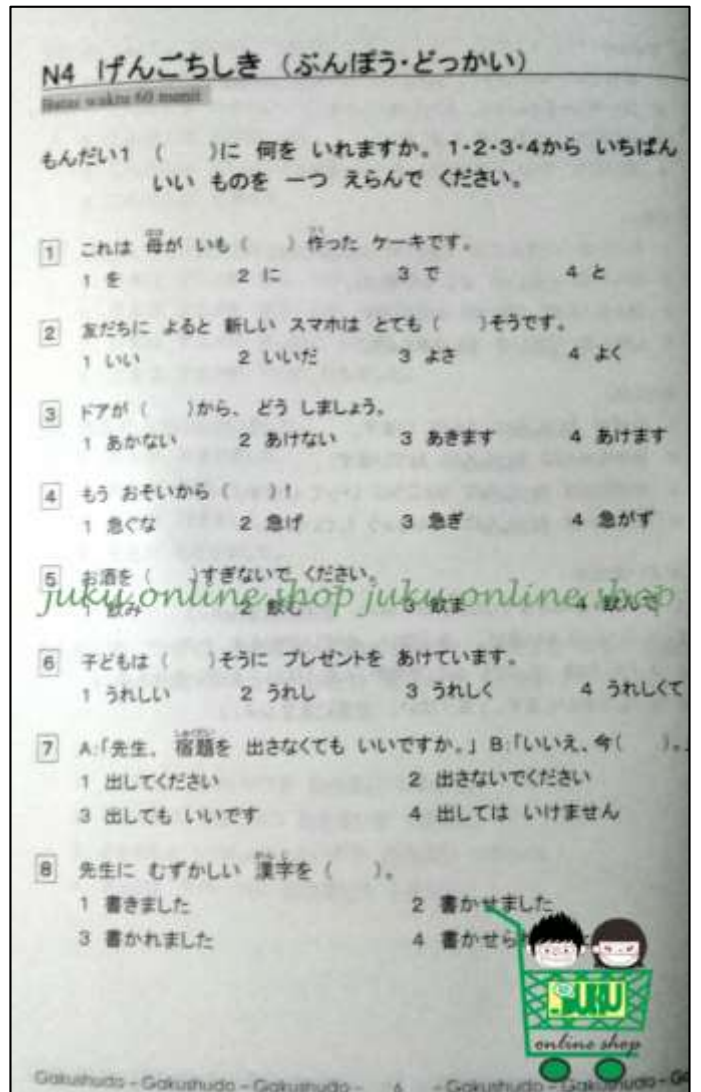 N4 げんごちしき (ぶんぽう・どっかい)
Batas waktu 60 menit
もんだい1 (　　)に 何を いれますか。1・2・3・4から いちばん
いい ものを 一つ えらんで ください。
1 これは 母が いも (　　) 作った ケーキです。
1 を 2 に 3 で 4 と
2 友だちに よると 新しい スマホは とても (　　)そうです。
1 いい 2 いいだ 3 よさ 4 よく
3 ドアが (　　)から、 どう しましょう。
1 あかない 2 あけない 3 あきます 4 あけます
4 もう おそいから (　　)！
1 急ぐな 2 急げ 3 急ぎ 4 急がず
5 お酒を (　　)すぎないで ください。
juku online shop juku online shop
1 飲み 2 飲む 3 飲ま 4 飲んで
6 子どもは (　　)そうに プレゼントを あけています。
1 うれしい 2 うれし 3 うれしく 4 うれしくて
7 A:「先生、 宿題を 出さなくても いいですか。」 B:「いいえ、今(　　)。」
1 出してください 2 出さないでください
3 出しても いいです 4 出しては いけません
8 先生に むずかしい 漢字を (　　)。
1 書きました 2 書かせました
3 書かれました 4 書かせられ
JUKU
online shop
Gakushudo - Gakushudo - Gakushudo - 6 - Gakushudo - Gakushudo - Ga